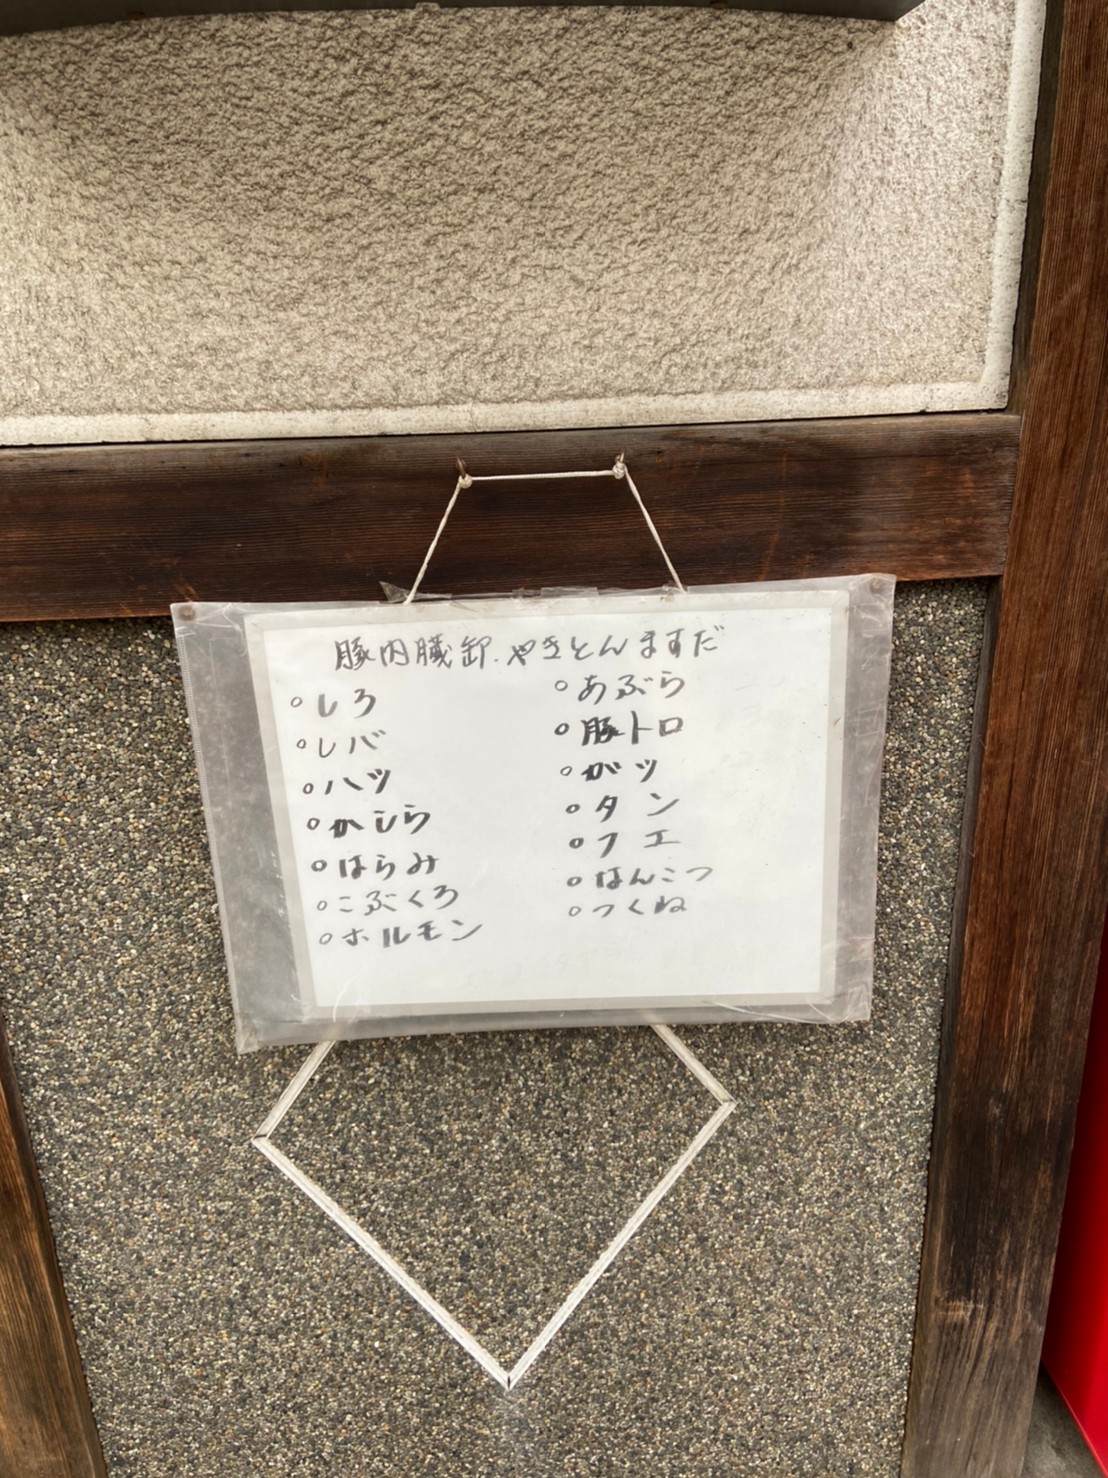 豚内臓卸.やきとんますだ
○しろ
○レバ
○ハツ
○かしら
○はらみ
○こぶくろ
○ホルモン
○あぶら
○豚トロ
○ガツ
○タン
○フエ
○はんこつ
○つくね